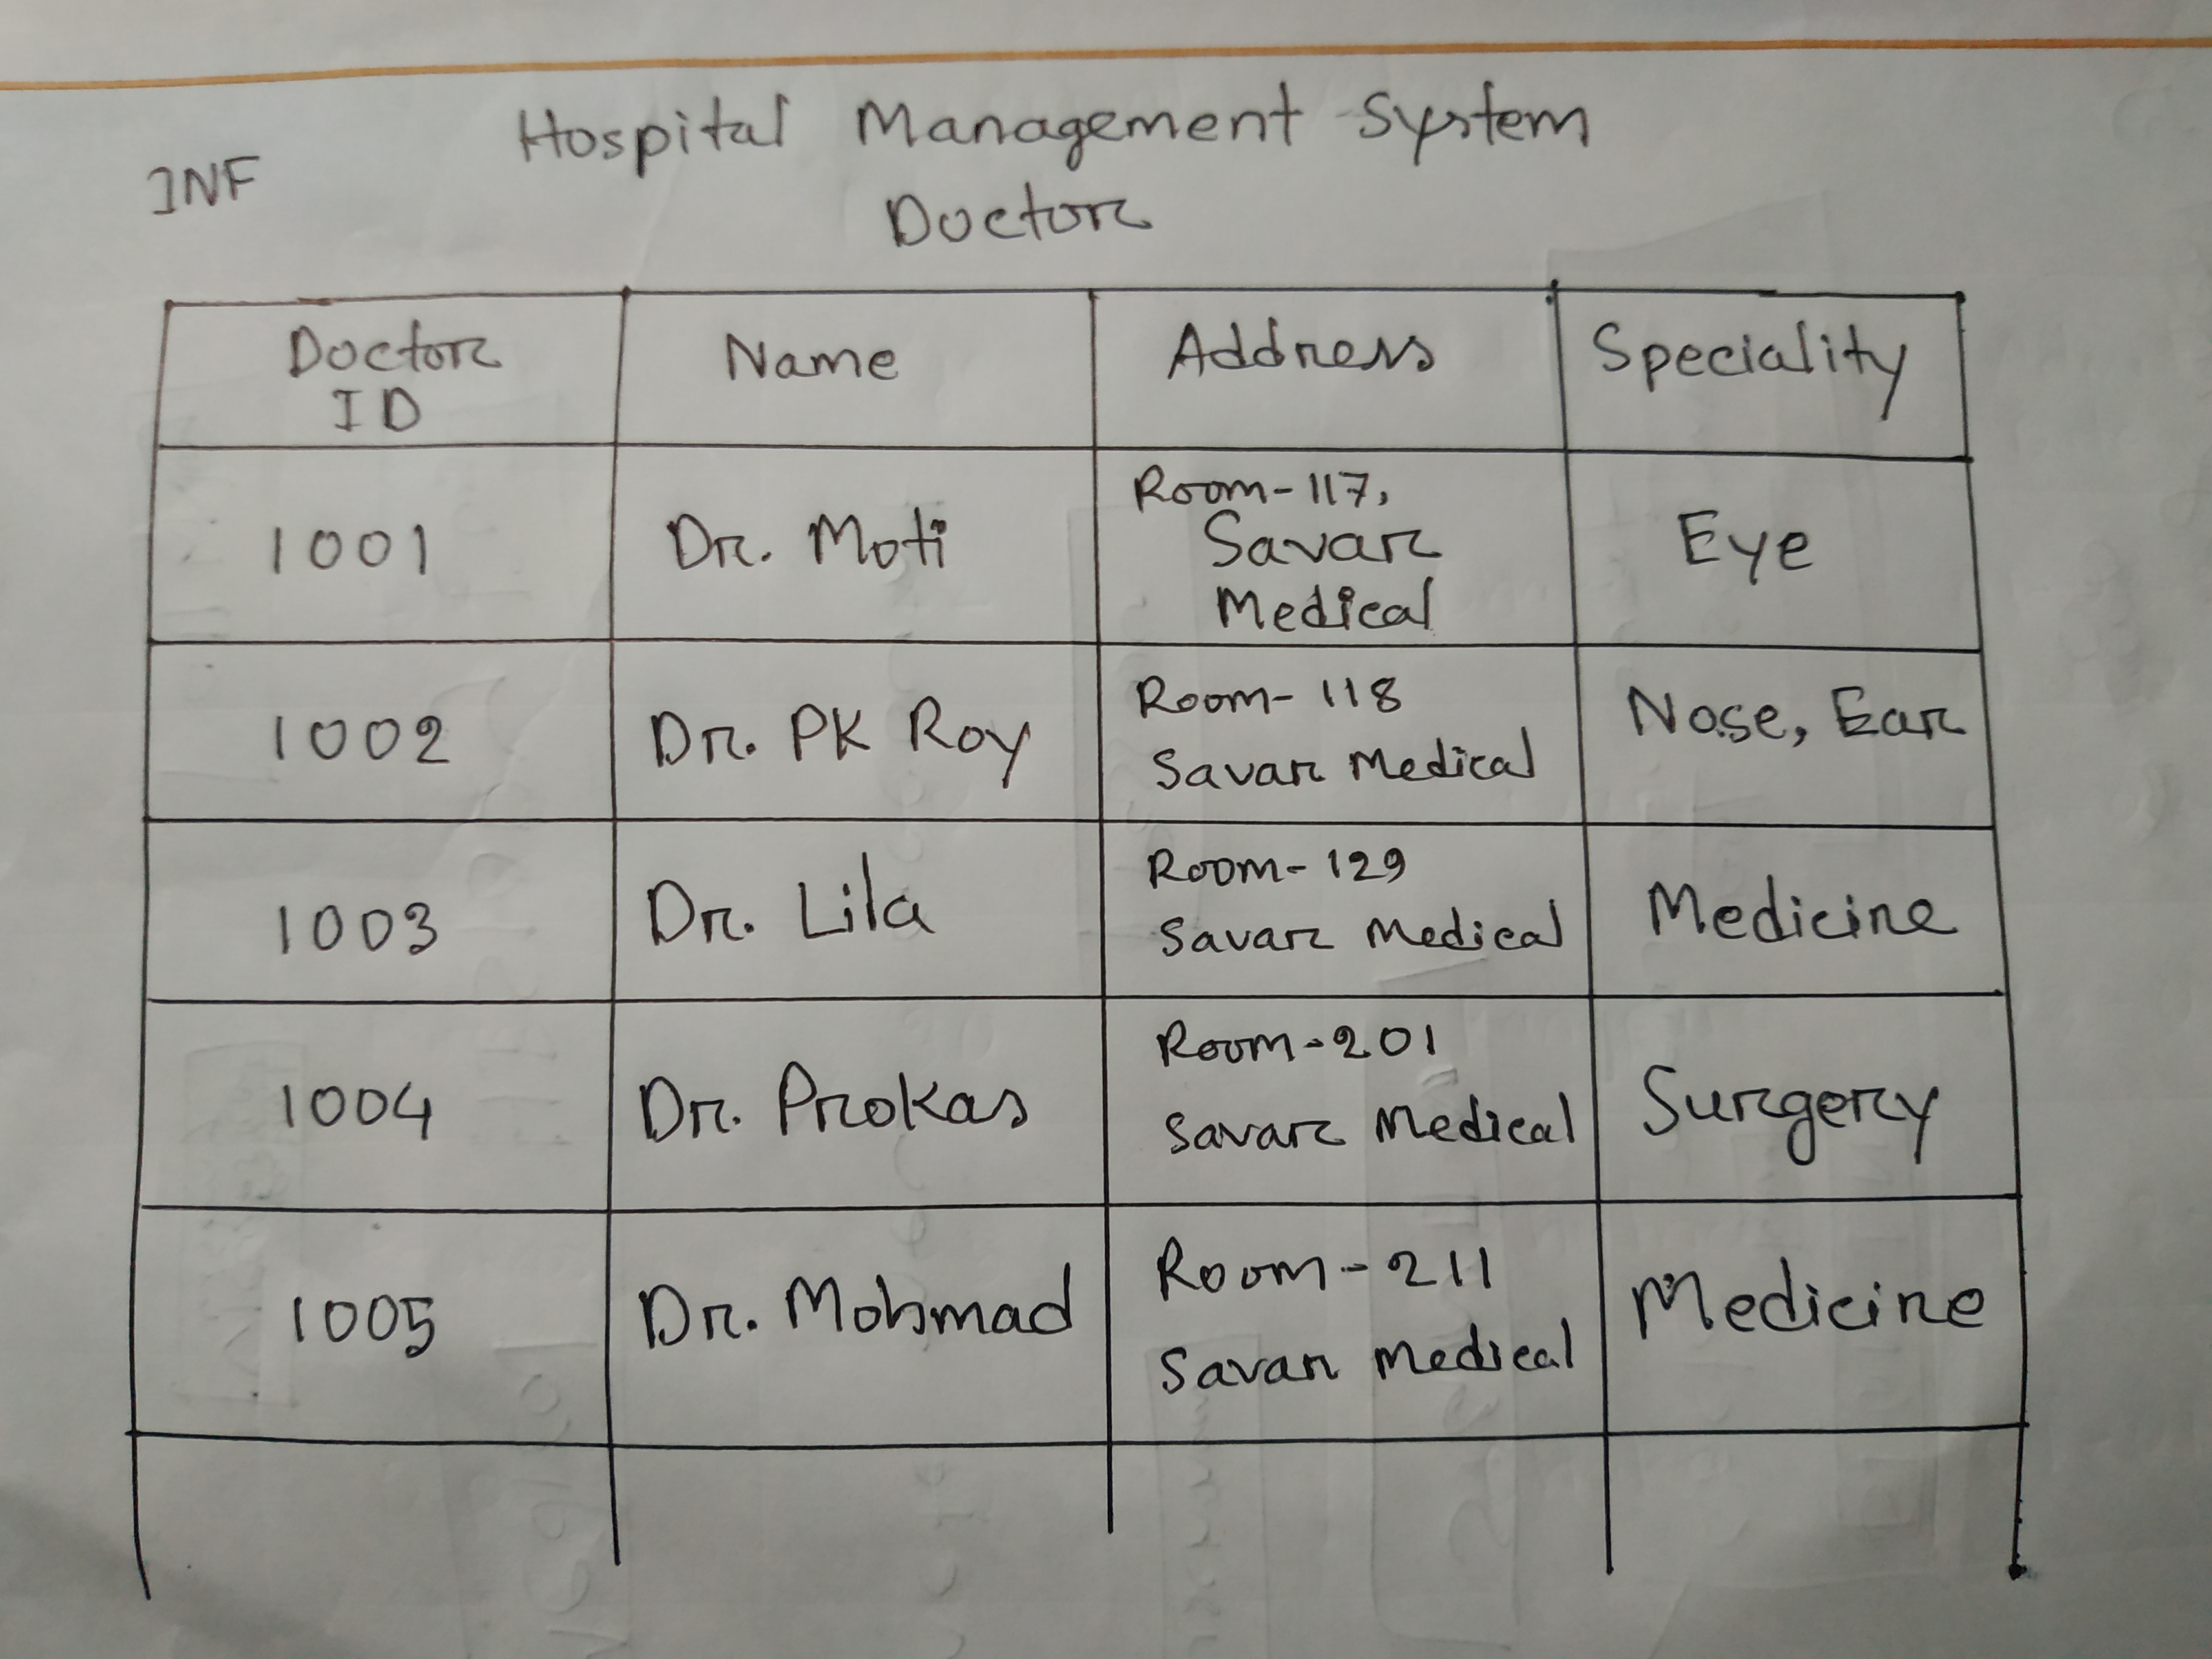 Hospital Management System
INF
Doctor
Doctor ID
Name
Address
Speciality
1001
Dr. Moti
Room-117,
Savar
Medical
Eye
1002
Dr. PK Roy
Room-118
Savar Medical
Nose, Ear
1003
Dr. Lila
Room-129
Savar Medical
Medicine
1004
Dr. Prokas
Room-201
Savar Medical
Surgery
1005
Dr. Mohmad
Room-211
Savar Medical
Medicine